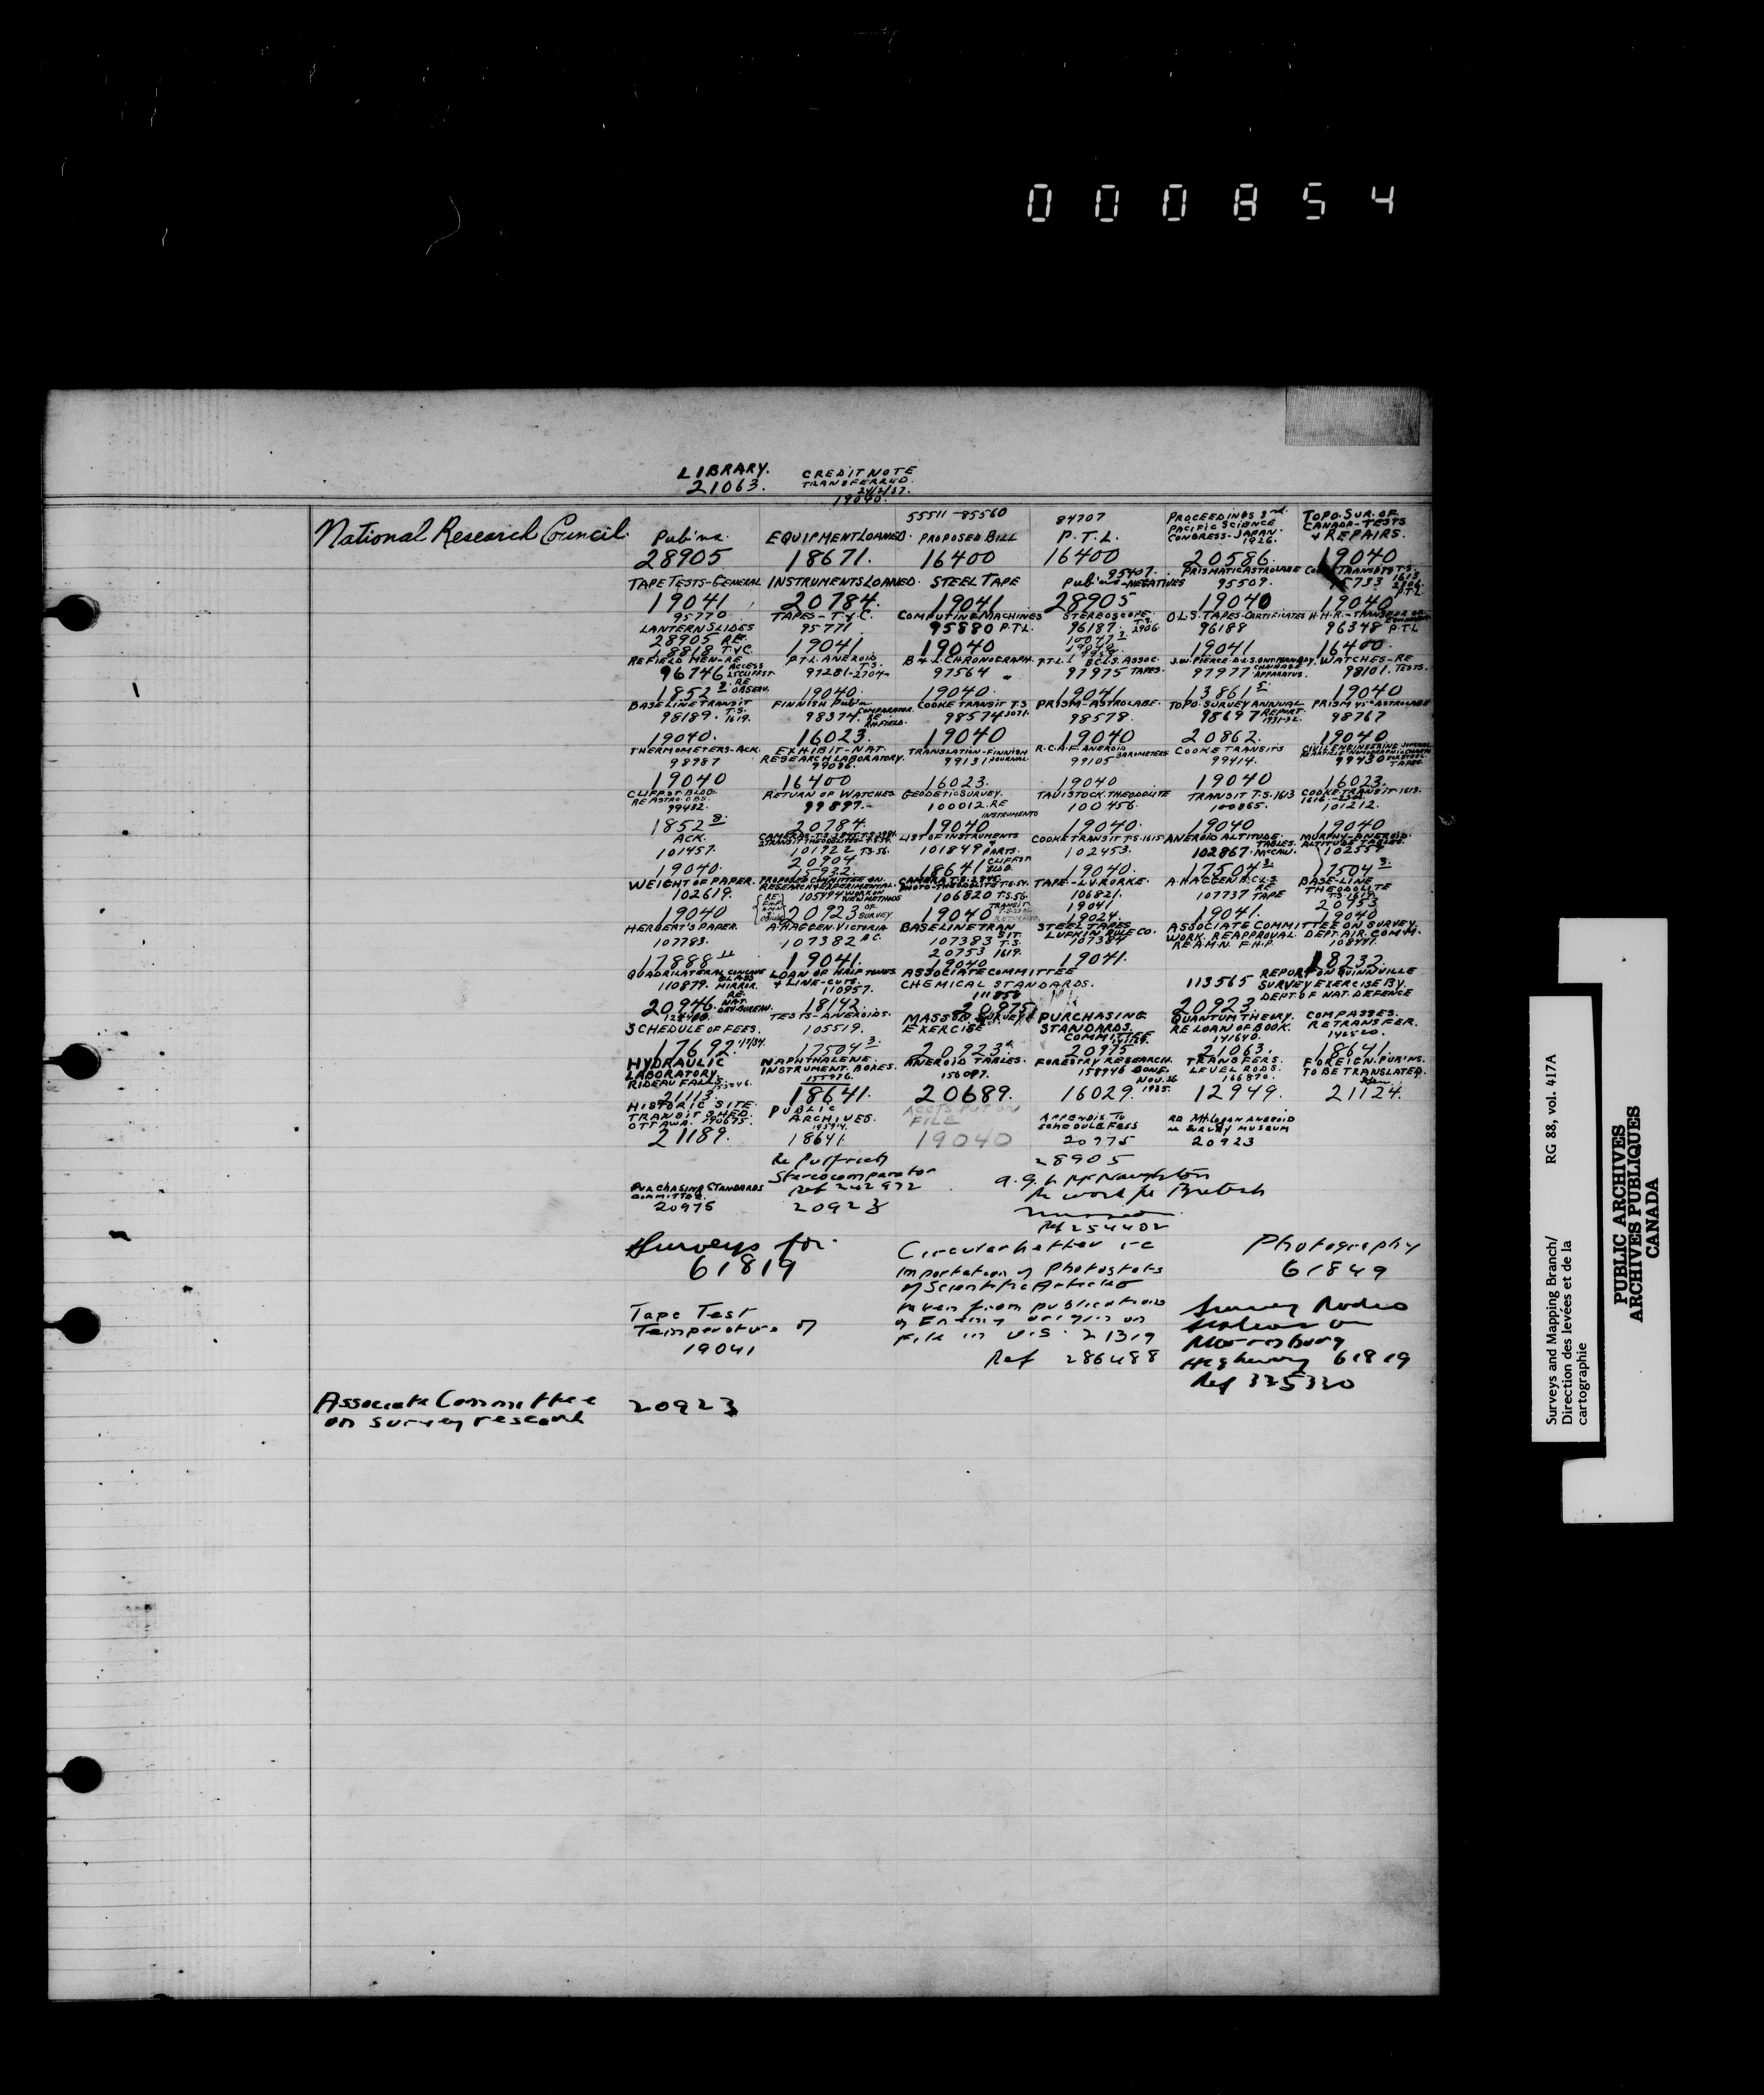 000854
LIBRARY.
21063.
CREDIT NOTE
TRANSFERRED.
24/2/37.
19040.
National Research Council.
Pub'ns.
28905
EQUIPMENT LOANED.
18671.
55511-85560
PROPOSED BILL
16400
84707
P.T.L.
16400
PROCEEDINGS 3rd.
PACIFIC SCIENCE
CONGRESS-JAPAN.
1926.
20586.
TOPO. SUR. OF
CANADA-TESTS
& REPAIRS.
19040
TAPE TESTS-GENERAL
19041
INSTRUMENTS LOANED.
20784.
STEEL TAPE
19041
95407.
Pub'ns-NEGATIVES
28905
PRISMATIC ASTROLABE
95509.
19040
19040
95770
LANTERN SLIDES
28905 RE.
18818 T.Y.C.
TAPES-T.Y.C.
95771
19041
COMPUTING MACHINES
95880 P.T.L.
19040
STEREOSCOPE.
96187.
O.L.S. TAPES-CERTIFICATES
96188
19041
96348 P.T.L
16400.
96746
P.T.L. ANEROID
97281-2704
19040.
B & L. CHRONOGRAPH.
97564
19040.
B.C.L.S. ASSOC.
97975 TAPES.
19041
97977 CHAINAGE
APPARATUS.
13861 5.
WATCHES-RE
98101. TESTS.
19040
BASE LINE TRANSIT
98189. T.S.
1619.
19040.
FINNISH Pub'n
98374.
16023.
COOKE TRANSIT T.S
98574
19040
PRISM-ASTROLABE.
98578.
19040
TOPO. SURVEY ANNUAL
98697 REPORT.
1931-32.
20862.
PRISM 45° ASTROLABE
98767
19040
THERMOMETERS-ACK.
98987
19040
EXHIBIT-NAT.
RESEARCH LABORATORY.
99086.
16400
TRANSLATION-FINNISH
99131 JOURNAL
16023.
R.C.A.F. ANEROID
99105 BAROMETERS
19040
COOKE TRANSITS
99414.
19040
CIVIL ENGINEERING JOURNAL
99430
16023.
CLIFF ST BLDG.
RE ASTRO. OBS.
99482.
1852 8.
RETURN OF WATCHES
99897.
20784.
GEODETIC SURVEY.
100012. RE
INSTRUMENTS
19040
TAVISTOCK THEODOLITE
100456.
19040.
TRANSIT T.S. 1613
100865.
19040
COOKE TRANSIT 1613.
101212.
19040
ACK.
101457.
19040.
101922 T.S. 56.
20904
LIST OF INSTRUMENTS
&
101849 PARTS.
18641 CLIFF ST
BLDG.
COOKE TRANSIT T.S. 1615
102453.
19040.
ANEROID ALTITUDE.
TABLES.
102867. McCAW.
17504 3.
MURPHY-ANEROID.
ALTITUDE TABLES.
102554
17504 3.
WEIGHT OF PAPER.
102619.
19040
PROPOSED COMMITTEE ON
RESEARCH & EXPERIMENTAL
WORK ON
NEW METHODS
OF
SURVEY
20923
106820 T.S. 56.
19040
TAPE-L.V. RORKE.
106821.
19041
19024.
A. HAGGEN B.C.L.S
RE
107737 TAPE
19041.
BASE-LINE
THEODOLITE
T.S. 1619.
20753
19040
HERBERT'S PAPER.
107783.
17888 11
A. HAGGEN-VICTORIA
107382 B.C.
19041.
BASELINE TRAN
SIT.
107383 T.S.
20753 1619.
19040
STEEL TAPES
LUFKIN RULE CO.
107384
19041.
ASSOCIATE COMMITTEE ON SURVEY.
WORK. REAPPROVAL. DEPT. AIR. COMM.
RE A.M.N. F.H.P. 108447.
18232.
QUADRILATERAL CONCAVE
GLASS
110879. MIRROR.
20946.
LOAN OF HALF TONES
& LINE-CUTS.
110957.
18142.
ASSOCIATE COMMITTEE
CHEMICAL STANDARDS.
111858
20975
113565 REPORT ON QUINNVILLE
SURVEY EXERCISE BY.
DEPT OF NAT. DEFENCE
20923.
SCHEDULE OF FEES.
17692.
TESTS-ANEROIDS.
105519.
17504 3.
MASSON SURVEY
EXERCISE
20923
PURCHASING
STANDARDS.
COMMITTEE
20975
QUANTUM THEORY.
RE LOAN OF BOOK.
141640.
21063.
COMPASSES.
RETRANSFER.
142520.
18641.
HYDRAULIC
LABORATORY.
RIDEAU FALLS.
21113.
NAPHTHALENE.
INSTRUMENT. BOXES.
155076.
18641.
ANEROID TABLES.
156097.
20689.
FORESTRY RESEARCH.
158946 CONF.
NOV. 26
1935.
16029.
TRANSFERS.
LEVEL RODS.
166870.
12949.
FOREIGN. PUB'NS.
TO BE TRANSLATED.
21124.
HISTORIC SITE.
TRANSIT SHED.
OTTAWA. 190675.
21189.
PUBLIC
ARCHIVES.
18641.
ACCTS PUT ON
FILE
19040
Appendix To
Schedule Fees
20975
20923
PURCHASING STANDARDS
COMMITTEE.
20975
Re Pulfrich
Stereocomparator
Ref 242972
20923
28905
A.G.L. McNaughton
Re work for British
Mission
Ref 254402
Surveys for.
61819
Circular Letter re
Importation of Photostats
of Scientific Articles
taken from publications
of Enemy origin on
File in U.S. 21319
Ref 286488
Photography
61849
Tape Test
Temperature of
19041
Survey Rodeo
Stations on
Morrisburg
Highway 61819
Ref 325320
Associate Committee
on survey research
20923
Surveys and Mapping Branch/
Direction des levées et de la
cartographie
RG 88, vol. 417A
PUBLIC ARCHIVES
ARCHIVES PUBLIQUES
CANADA